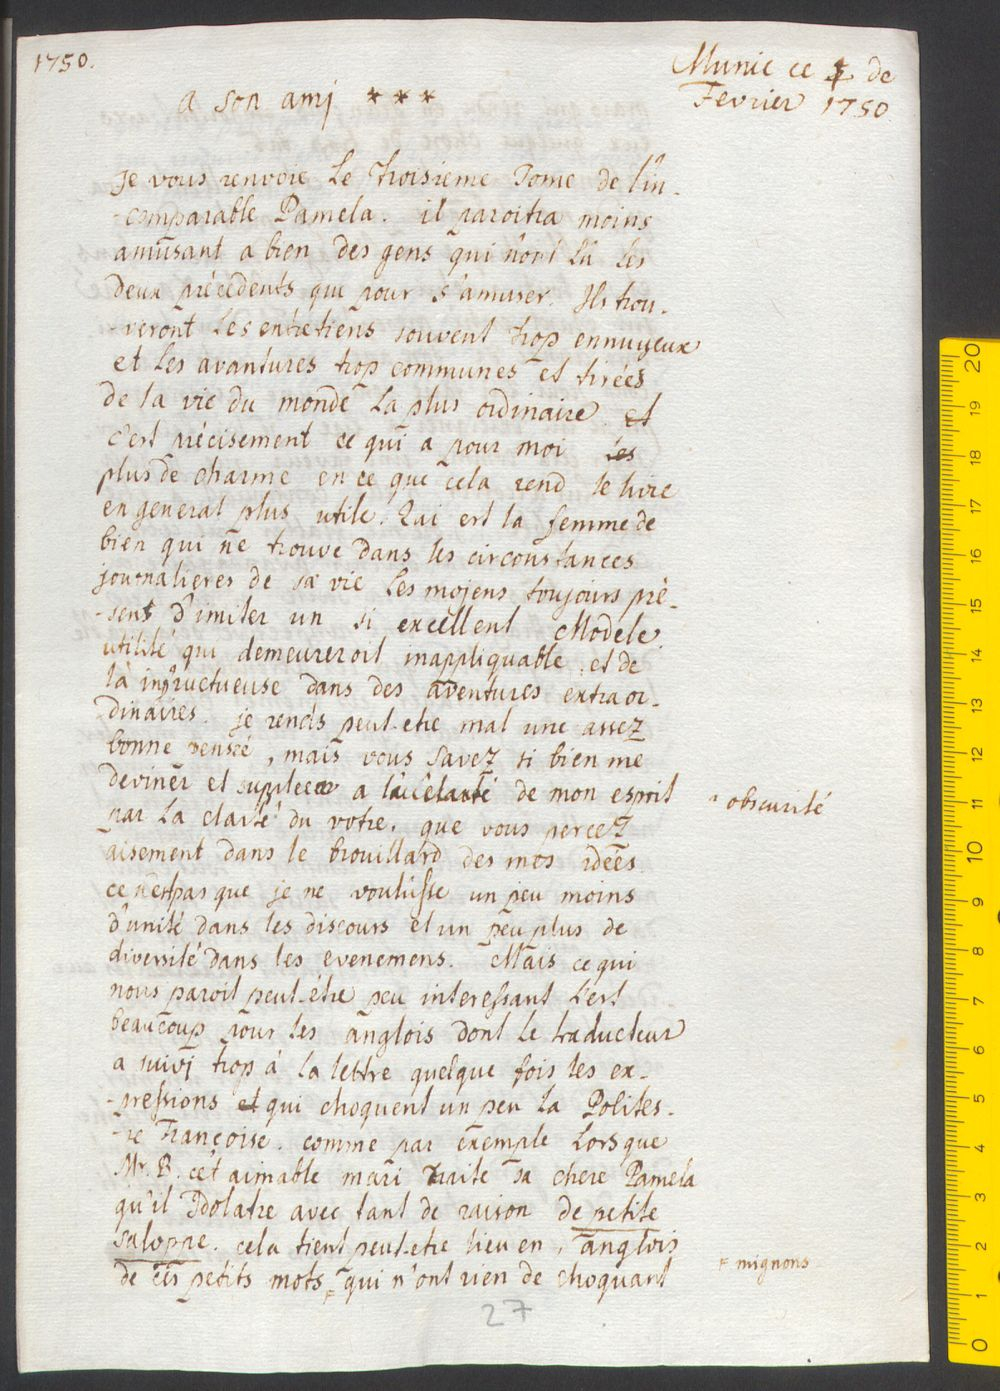 1750.
Munic ce 5 de
Fevrier 1750
a son ami ***
Je vous renvoie Le troisieme Tome de l'in-
-comparable Pamela. il paroitra moins
amusant a bien des gens qui n'ont lû les
deux précedents que pour s'amuser. Ils trou-
-veront Les entretiens souvent trop ennuyeux
et Les avantures trop communes et tirées
de la vie du monde La plus ordinaire. et
c'est précisement ce qui a pour moi les
plus de charme en ce que cela rend le livre
en general plus utile. Qui est la femme de
bien qui ne trouve dans les circonstances
journalieres de sa vie Les mojens toujours pré-
-sens d'imiter un si excellent Modele.
utilité qui demeureroit inappliquable, et de
là infructueuse dans des aventures extraor-
-dinaires. je rends peut-etre mal une assez
bonne pensée, mais vous savez si bien me
deviner et supleer a de mon esprit
par La clarté du votre, que vous percez
aisement dans le brouillard des mes idées.
ce n'est pas que je ne voulusse un peu moins
d'unité dans les discours et un peu plus de
diversité dans les evenemens. Mais ce qui
nous paroit peut-étre peu interessant L'est
beaucoup pour les anglois dont le traducteur
a suivj trop à la lettre quelque fois les ex-
-pressions et qui choquent un peu La Polites-
-se Françoise. comme par exemple Lorsque
Mr. B. cet aimable mari traite sa chere Pamela
qu'il Idolatre avec tant de raison de petite
saloppe. cela tient peut-etre lieu en anglois
de ces petits mots qui n'ont rien de choquant
obscurité
mignons
27
0 1 2 3 4 5 6 7 8 9 10 11 12 13 14 15 16 17 18 19 20